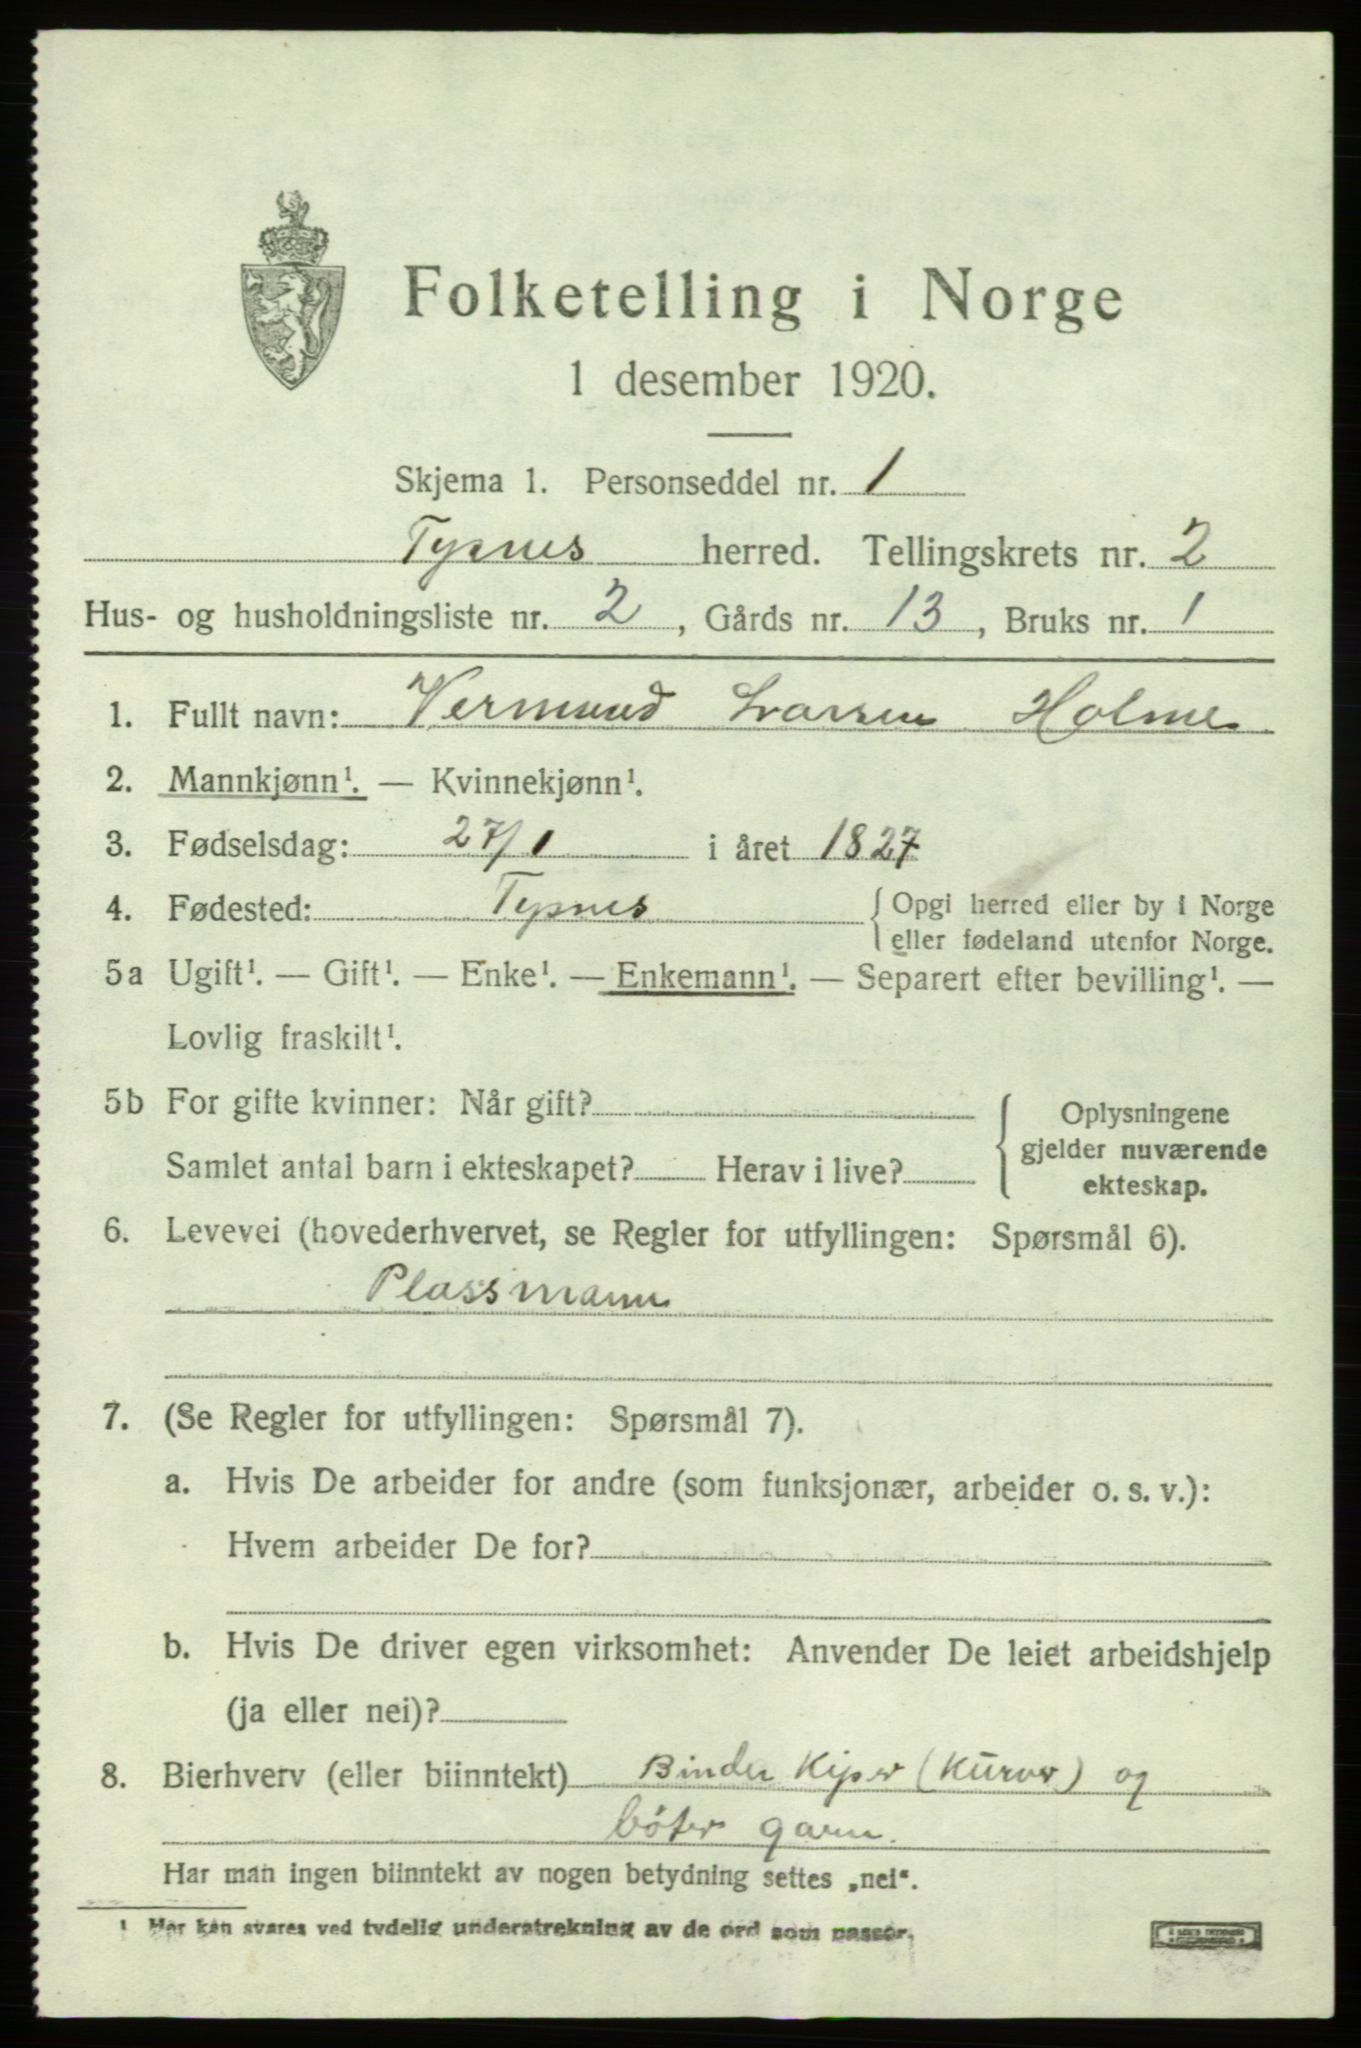 Folketelling i Norge
1 desember 1920.
Skjema 1. Personseddel nr. 1
Tysnes herred. Tellingskrets nr. 2
Hus- og husholdningsliste nr. 2, Gårds nr. 13, Bruks nr. 1
1. Fullt navn: Vermund Larsen Holme
2. Mannkjønn¹. — Kvinnekjønn¹.
3. Fødselsdag: 27/1 i året 1827
4. Fødested: Tysnes {Opgi herred eller by i Norge
eller fødeland utenfor Norge.
5a Ugift¹. — Gift¹. — Enke¹. — Enkemann¹. — Separert efter bevilling¹. —
Lovlig fraskilt¹.
5b For gifte kvinner: Når gift?
Samlet antal barn i ekteskapet? Herav i live?
Oplysningene
gjelder nuværende
ekteskap.
6. Levevei (hovederhvervet, se Regler for utfyllingen: Spørsmål 6).
Plassmann
7. (Se Regler for utfyllingen: Spørsmål 7).
a. Hvis De arbeider for andre (som funksjonær, arbeider o. s. v.):
Hvem arbeider De for?
b. Hvis De driver egen virksomhet: Anvender De leiet arbeidshjelp
(ja eller nei)?
8. Bierhverv (eller biinntekt) Binder Kiper (Kurver) og
bøter garn.
Har man ingen biinntekt av nogen betydning settes „nei“.
¹ Her kan svares ved tydelig understrekning av de ord som passer.